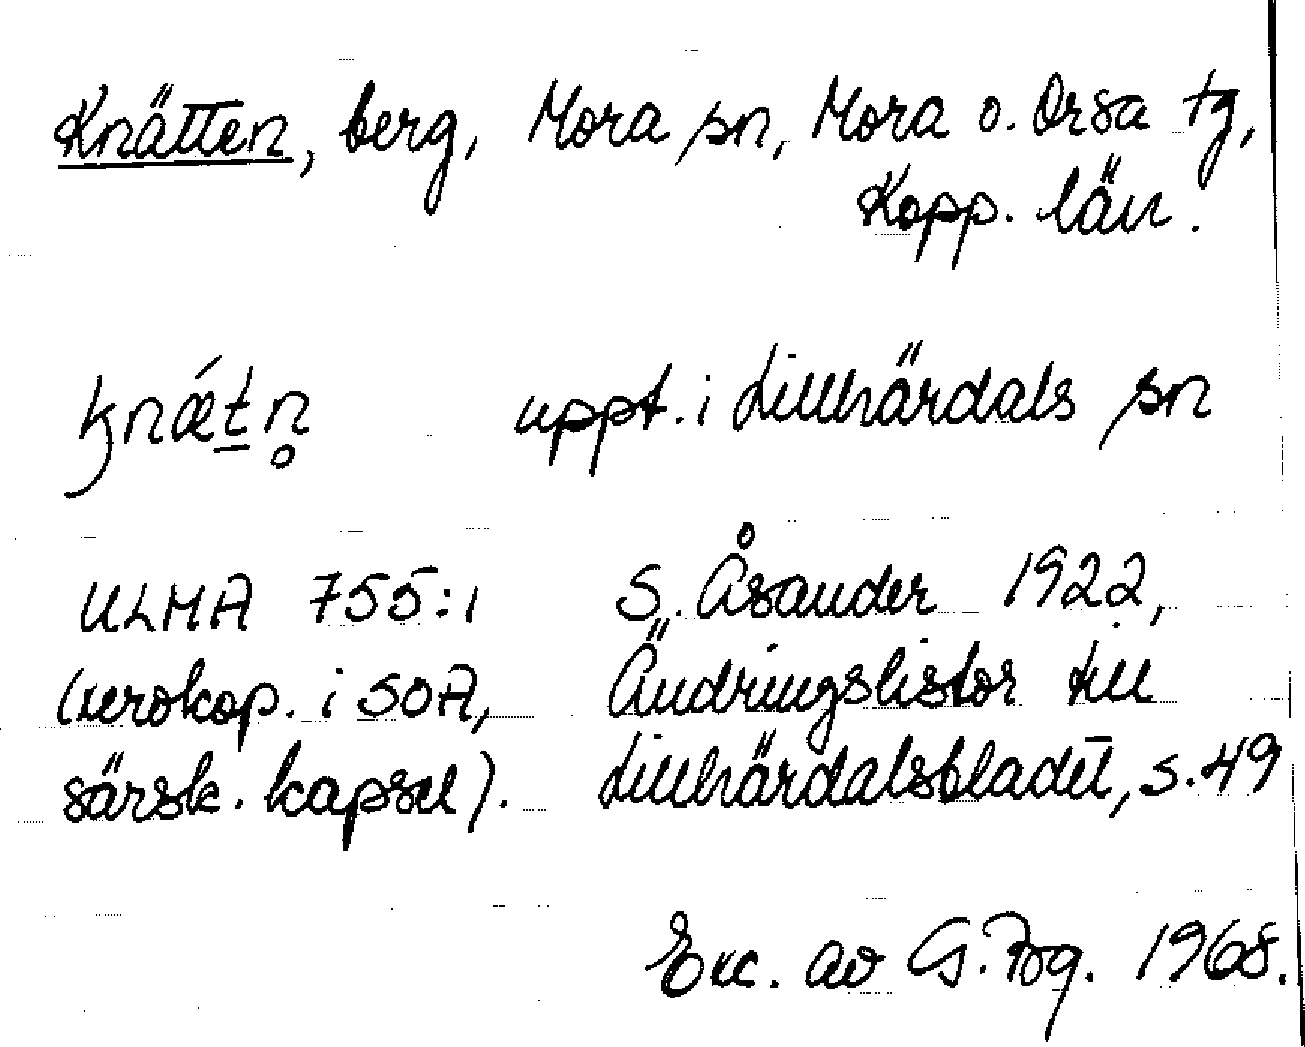 Knätten, berg, Mora sn, Mora o. Orsa tg,
Kopp. län.
knǽt̲n̥ uppt. i Lillhärdals sn
ULMA 755:1 S. Åsander 1922,
(xerokop. i SOA, Ändringslistor till
särsk. kapsel). Lillhärdalsbladet, s. 49
Exc. av G. Fog. 1968.